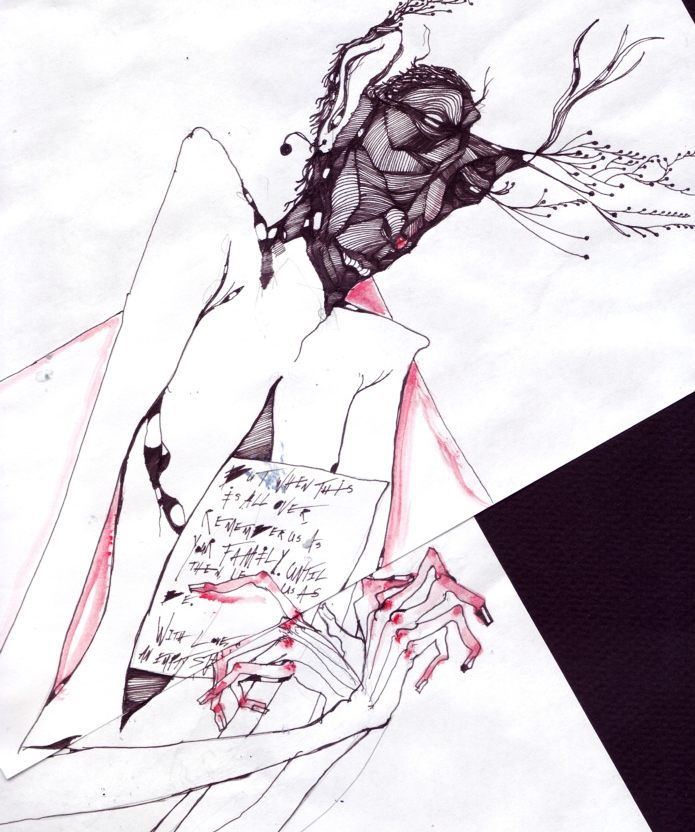 BUT WHEN THIS
IS ALL OVER
REMEMBER US AS
YOUR FAMILY. UNTIL
THEN US AS
WITH LOVE
AN EMPTY